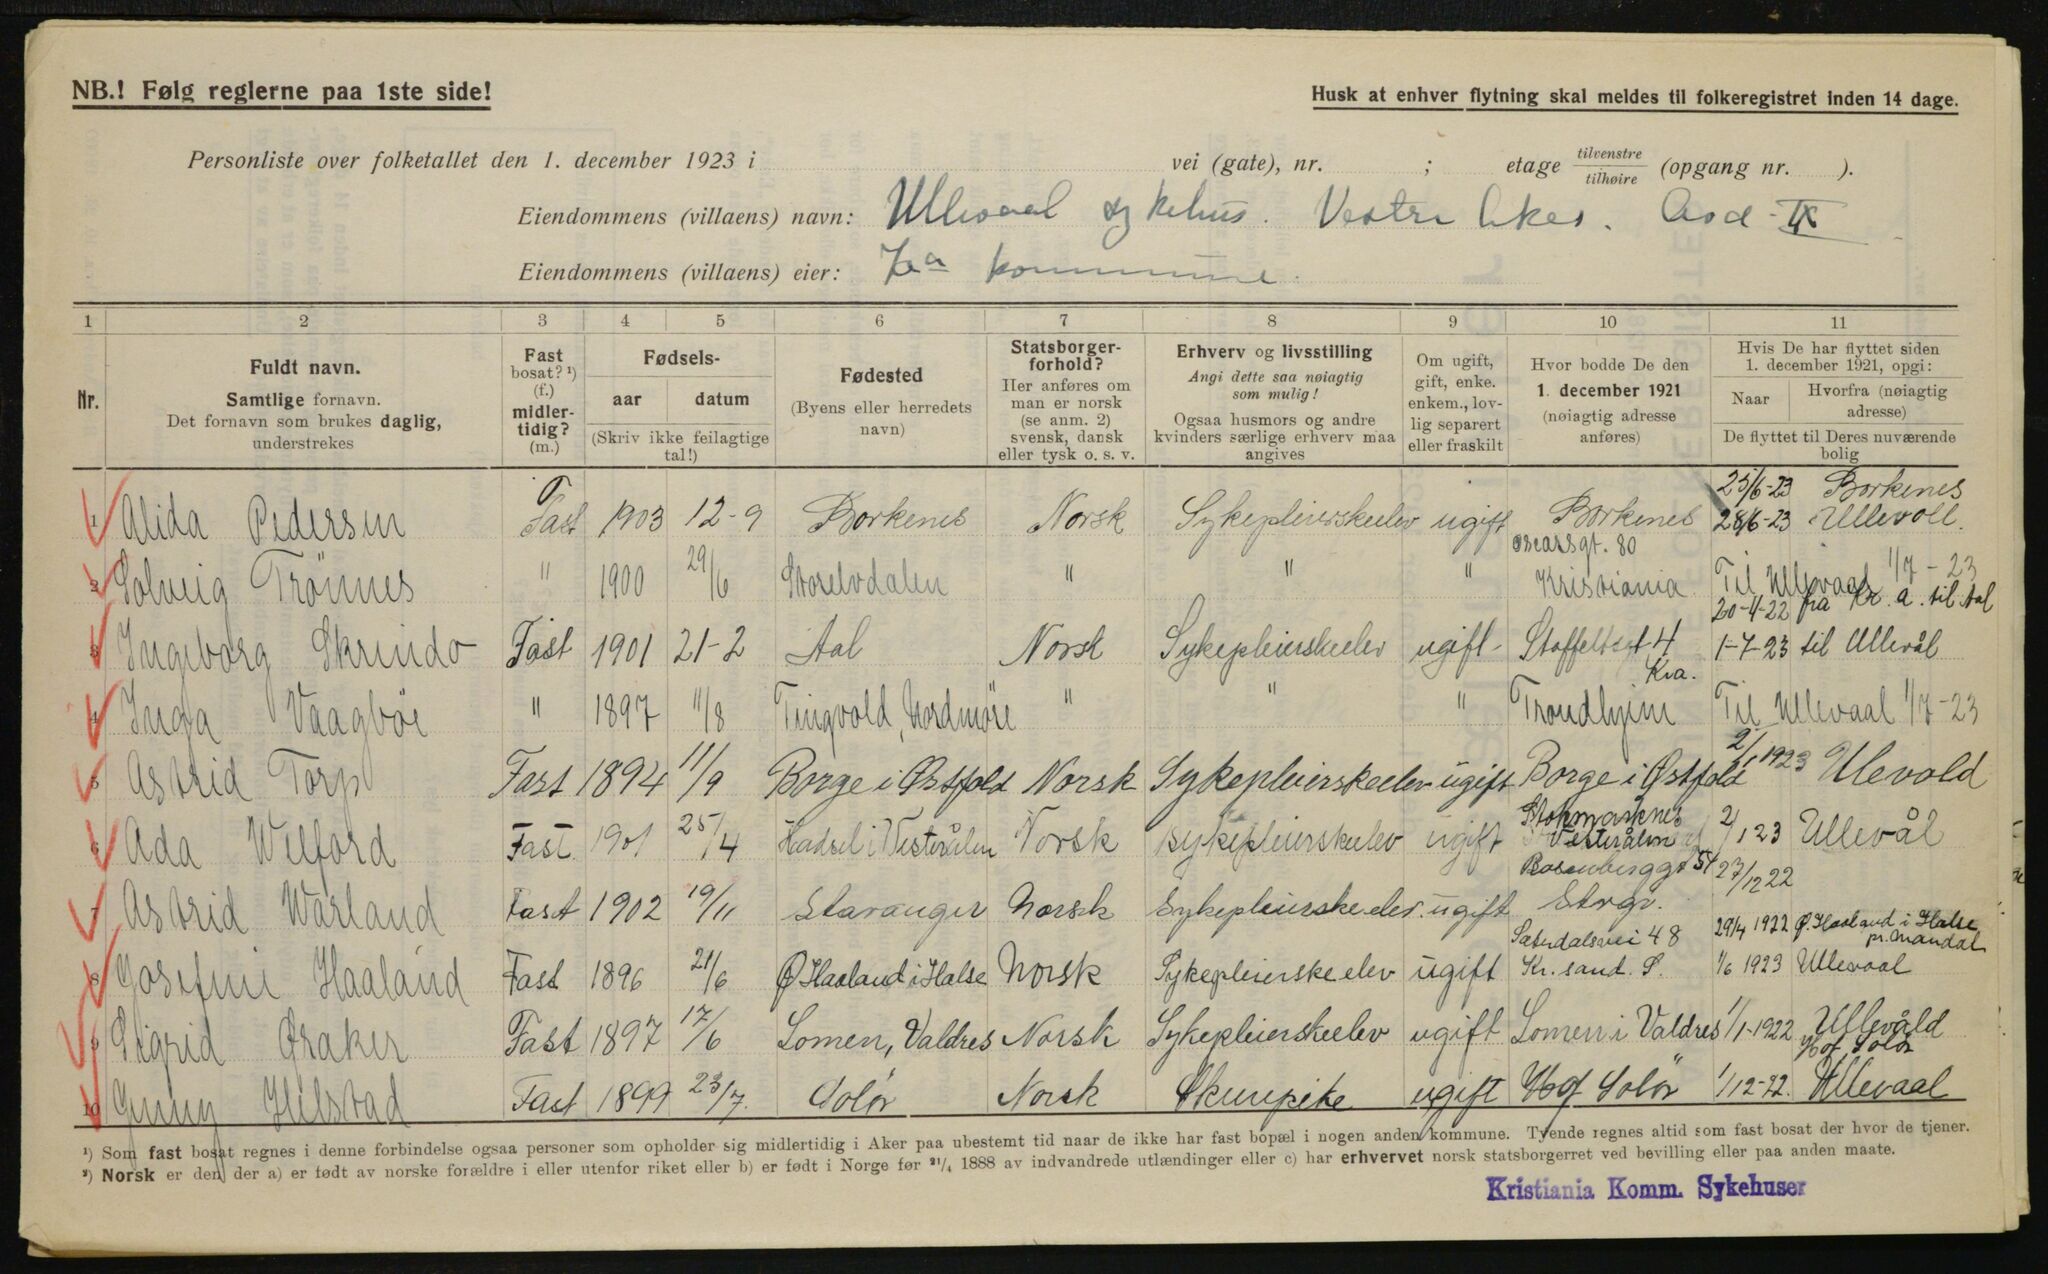 NB.! Følg reglerne paa 1ste side!
Husk at enhver flytning skal meldes til folkeregistret inden 14 dage.
Personliste over folketallet den 1. december 1923 i vei (gate), nr. ; etage tilvenstre tilhøire (opgang nr. ).
Eiendommens (villaens) navn: Ullevaal sykehus. Vestre Aker. Avd. IX
Eiendommens (villaens) eier: Kra kommune.
1 2 3 4 5 6 7 8 9 10 11
Nr.
Fuldt navn.
Samtlige fornavn.
Det fornavn som brukes daglig,
understrekes
Fast
bosat? ¹)
(f.)
midler-
tidig?
(m.)
Fødsels-
aar datum
(Skriv ikke feilagtige
tal!)
Fødested
(Byens eller herredets
navn)
Statsborger-
forhold?
Her anføres om
man er norsk
(se anm. 2)
svensk, dansk
eller tysk o. s. v.
Erhverv og livsstilling
Angi dette saa nøiagtig
som mulig!
Ogsaa husmors og andre
kvinders særlige erhverv maa
angives
Om ugift,
gift, enke.
enkem., lov-
lig separert
eller fraskilt
Hvor bodde De den
1. december 1921
(nøiagtig adresse
anføres)
Hvis De har flyttet siden
1. december 1921, opgi:
Naar Hvorfra (nøiagtig
adresse)
De flyttet til Deres nuværende
bolig
25/6-23 Borkenes
1 Alida Pedersen Fast 1903 12-9 Borkenes Norsk Sykepleierskeelev ugift Borkenes 28/6-23 Ullevoll.
Oscarsgt. 80
2 Solveig Trönnes " 1900 29/6 Storelvdalen " " " Kristiania Til Ullevaal 1/7-23
20-4-22 fra Kr.a. til Aal
3 Ingeborg Skrindo Fast 1901 21-2 Aal Norsk Sykepleierskeelev ugift- Stoffeltsgt 4 Kra. 1-7-23 til Ullevål
4 Inga Vaagböe " 1897 11/8 Tingvold, Nordmöre " " " Trondhjem Til Ullevaal 1/7-23
5 Astrid Torp Fast 1894 11/9 Borge i Østfold Norsk Sykepleierskeelev ugift Borge i Østfold 2/1 1923 Ulevold
6 Ada Welford Fast 1901 25/4 Hadsel i Vesterålen Norsk Sykepleierskeelev ugift Stokmarknes Vesterålen 2/1 23 Ullevål
Rosenberggt 54 27/12 22
7 Astrid Warland Fast 1902 19/11 Stavanger Norsk Sykepleierskeelev. ugift Stvgr.
Sæterdalsvei 48 29/4 1922 Ø. Haaland i Halse pr. Mandal
8 Josefine Haaland Fast 1896 21/6 Ø Haaland i Halse Norsk Sykepleierskeelev ugift Kr.sand. S. 1/6 1923 Ullevaal
9 Sigrid Øraker Fast 1897 17/6 Lomen, Valdres Norsk Sykepleierskeelev ugift Lomen i Valdres 1/1-1922 Ullevåld
Hof Solör
10 Gunny Hilstad Fast 1899 23/7. Solör Norsk Skurepike ugift Hof Solör 1/12-22. Ullevaal
¹) Som fast bosat regnes i denne forbindelse ogsaa personer som opholder sig midlertidig i Aker paa ubestemt tid naar de ikke har fast bopæl i nogen anden kommune. Tyende regnes altid som fast bosat der hvor de tjener.
²) Norsk er den, der a) er født av norske forældre i eller utenfor riket eller b) er født i Norge før 21/4 1888 av indvandrede utlændinger eller c) har erhvervet norsk statsborgerret ved bevilling eller paa anden maate.
Kristiania Komm. Sykehuser